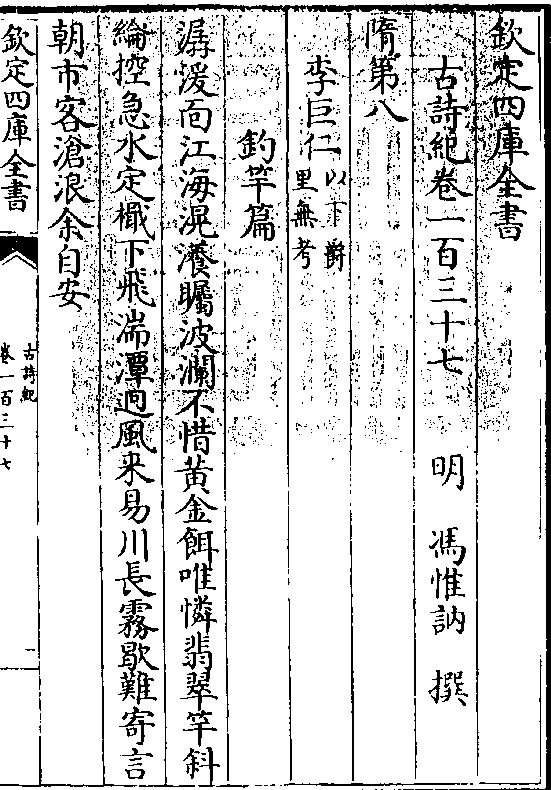 欽定四庫全書
古詩紀卷一百三十七 明 馮惟訥 撰
隋第八
李巨仁以下爵里無考
釣竿篇
潺湲面江海滉瀁矚波瀾不惜黃金餌唯憐翡翠竿斜
綸控急水定檝下飛湍潭逈風来易川長霧歇難寄言
朝市客滄浪余自安
欽定四庫全書
古詩紀
卷一百三十七
一